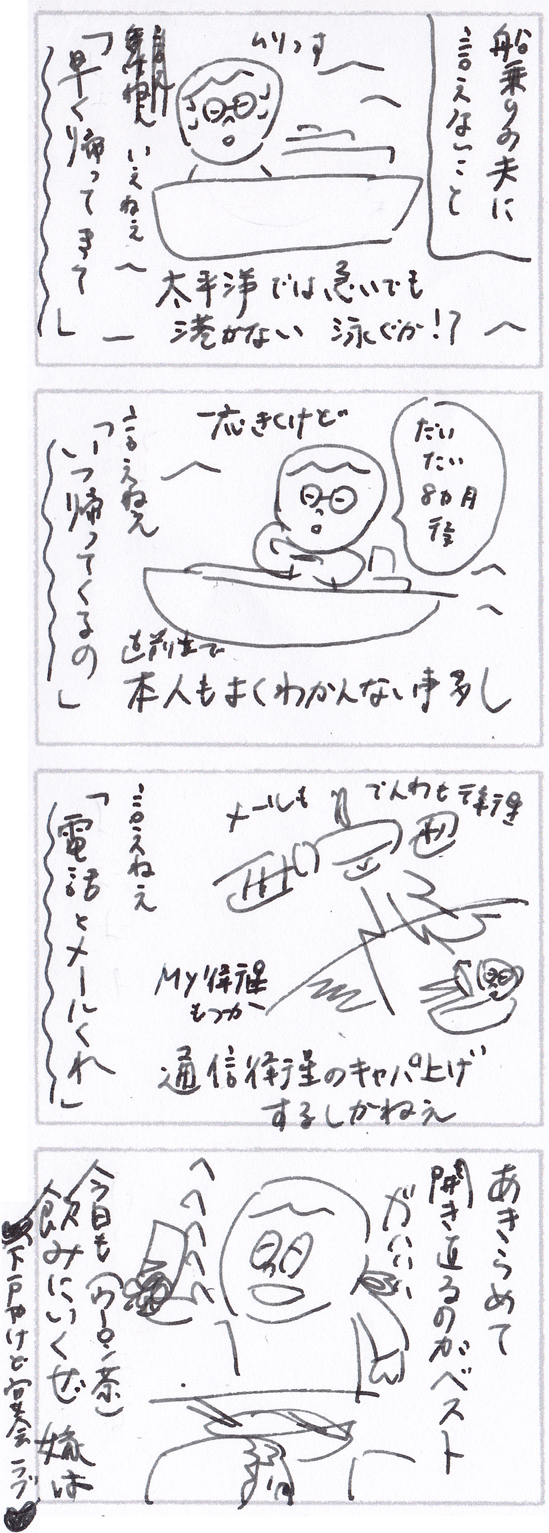 船乗りの夫に
言えないこと
ムリっす
いえねえ
「早く帰ってきて」
太平洋では急いでも
港がない 泳ぐか!?
だい
たい
8カ月
一応きくけど
言えねえ
「いつ帰ってくるの」
直前まで
本人もよくわかんない事多し
でんわも衛星
メールも
言えねえ
「電話とメールくれ」
MY衛星
もつか
通信衛星のキャパ上げ
するしかねえ
あきらめて
開き直るのがベスト
ガハハハ
今日も(ウーロン茶)
飲みにいくぜ 嫁は
下戸だけど宴会ラブ